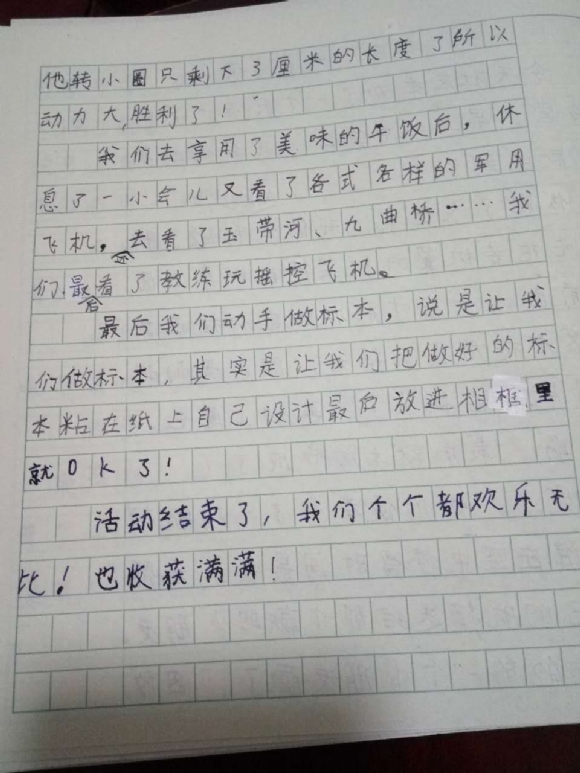 他转小圈只剩下3厘米的长度了所以
动力大,胜利了!
我们去享用了美味的午饭后,休
息了一小会儿又看了各式各样的军用
飞机,还去看了玉带河、九曲桥……我
们最后看了教练玩摇控飞机。
最后我们动手做标本,说是让我
们做标本,其实是让我们把做好的标
本粘在纸上自己设计最后放进相框里
就OK了!
活动结束了,我们个个都欢乐无
比!也收获满满!